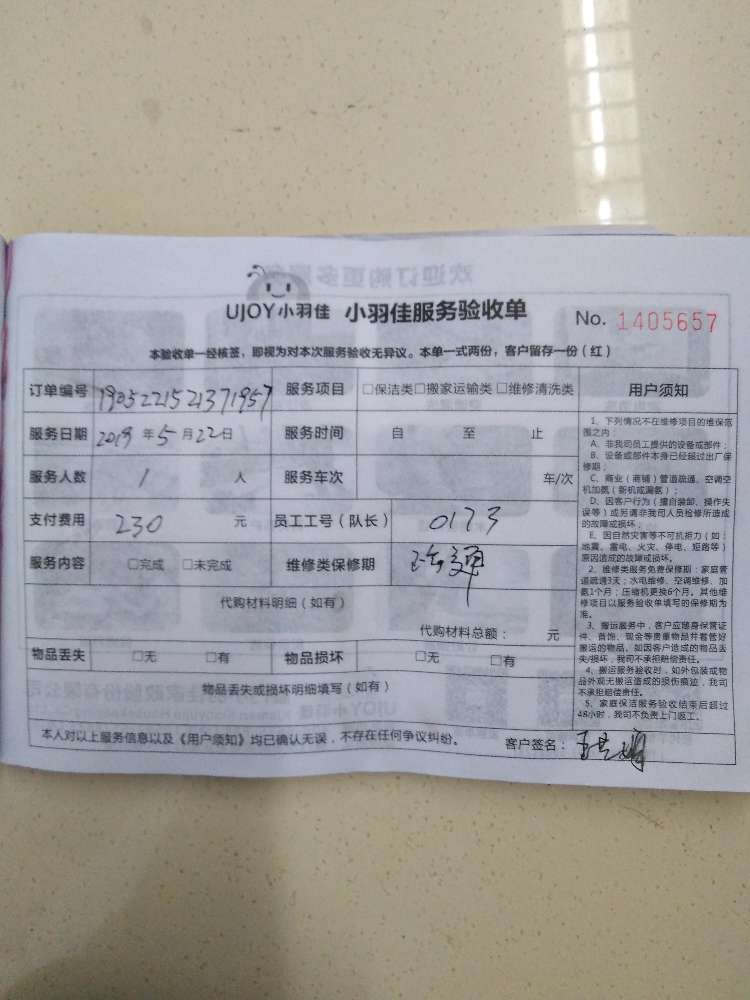 UJOY小羽佳 小羽佳服务验收单 No. 1405657
本验收单一经核签，即视为对本次服务验收无异议。本单一式两份，客户留存一份（红）
订单编号 1905221521371957 服务项目 □保洁类□搬家运输类□维修清洗类
服务日期 2019年5月22日 服务时间 自 至 止
服务人数 1 人 服务车次 车/次
支付费用 230 元 员工工号（队长） 0173
服务内容 □完成 □未完成 维修类保修期
代购材料明细（如有）
代购材料总额： 元
物品丢失 □无 □有 物品损坏 □无 □有
物品丢失或损坏明细填写（如有）
本人对以上服务信息以及《用户须知》均已确认无误，不存在任何争议纠纷。 客户签名：
用户须知
1、下列情况不在维修项目的维保范
围之内：
A、非我司员工提供的设备或部件；
B、设备或部件本身已经超过出厂保
修期；
C、商业（商铺）管道疏通、空调空
机加氨（新机或漏氨）；
D、因客户行为（擅自装卸、操作失
误等）或另请非我司人员检修所造成
的故障或损坏；
E、因自然灾害等不可抗拒力（如：
地震、雷电、火灾、停电、短路等）
原因造成的故障或损坏。
2、维修类服务免费保修期：家庭管
道疏通3天；水电维修、空调维修、加
氨1个月；压缩机更换6个月。其他维
修项目以服务验收单填写的保修期为
准。
3、搬运服务中，客户应随身保管证
件、首饰、现金等贵重物品并看管好
搬运的物品，如因客户造成的物品丢
失/损坏，我司不承担赔偿责任。
4、搬运服务验收时，如外包装或物
品外观无搬运造成的损伤痕迹，我司
不承担赔偿责任。
5、家庭保洁服务验收结束后超过
48小时，我司不负责上门返工。